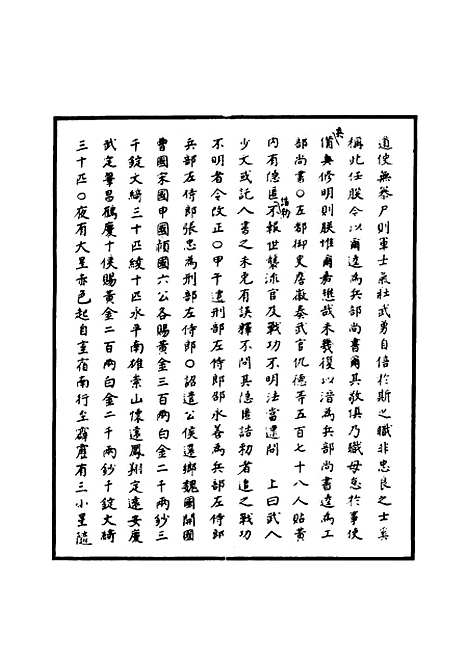 道使無忝尸則軍士氣壯武勇自倍於斯之職非忠良之士奚
稱此任朕今以爾逵為兵部尚書爾其敬俱乃職毋怠於事使
備無修明則朕惟爾嘉懋哉未幾復以溍為兵部尚書逵為工
部尚書○左都御史詹徽奏武官仇德等五百七十八人貼黃
內有隱匿不報世襲流官及戰功不明法當逮問　上曰武人
少文或託人書之未免有誤釋不問其隱匿誥勅者追之戰功
不明者令改正○甲午遣刑部左侍郎邵永善為兵部左侍郎
兵部左侍郎張忠為刑部左侍郎○詔遣公侯還鄉魏國開國
曹國宋國申國潁國六公各賜黃金三百兩白金二千兩鈔三
千錠文綺三十匹綾十匹永平南雄崇山懷遠鳳翔定遠安慶
武定鞏昌鶴慶十侯賜黃金二百兩白金二千兩鈔千錠文綺
三十匹○夜有大星赤色起自室宿南行至霹靂有三小星隨
奚
誥勅